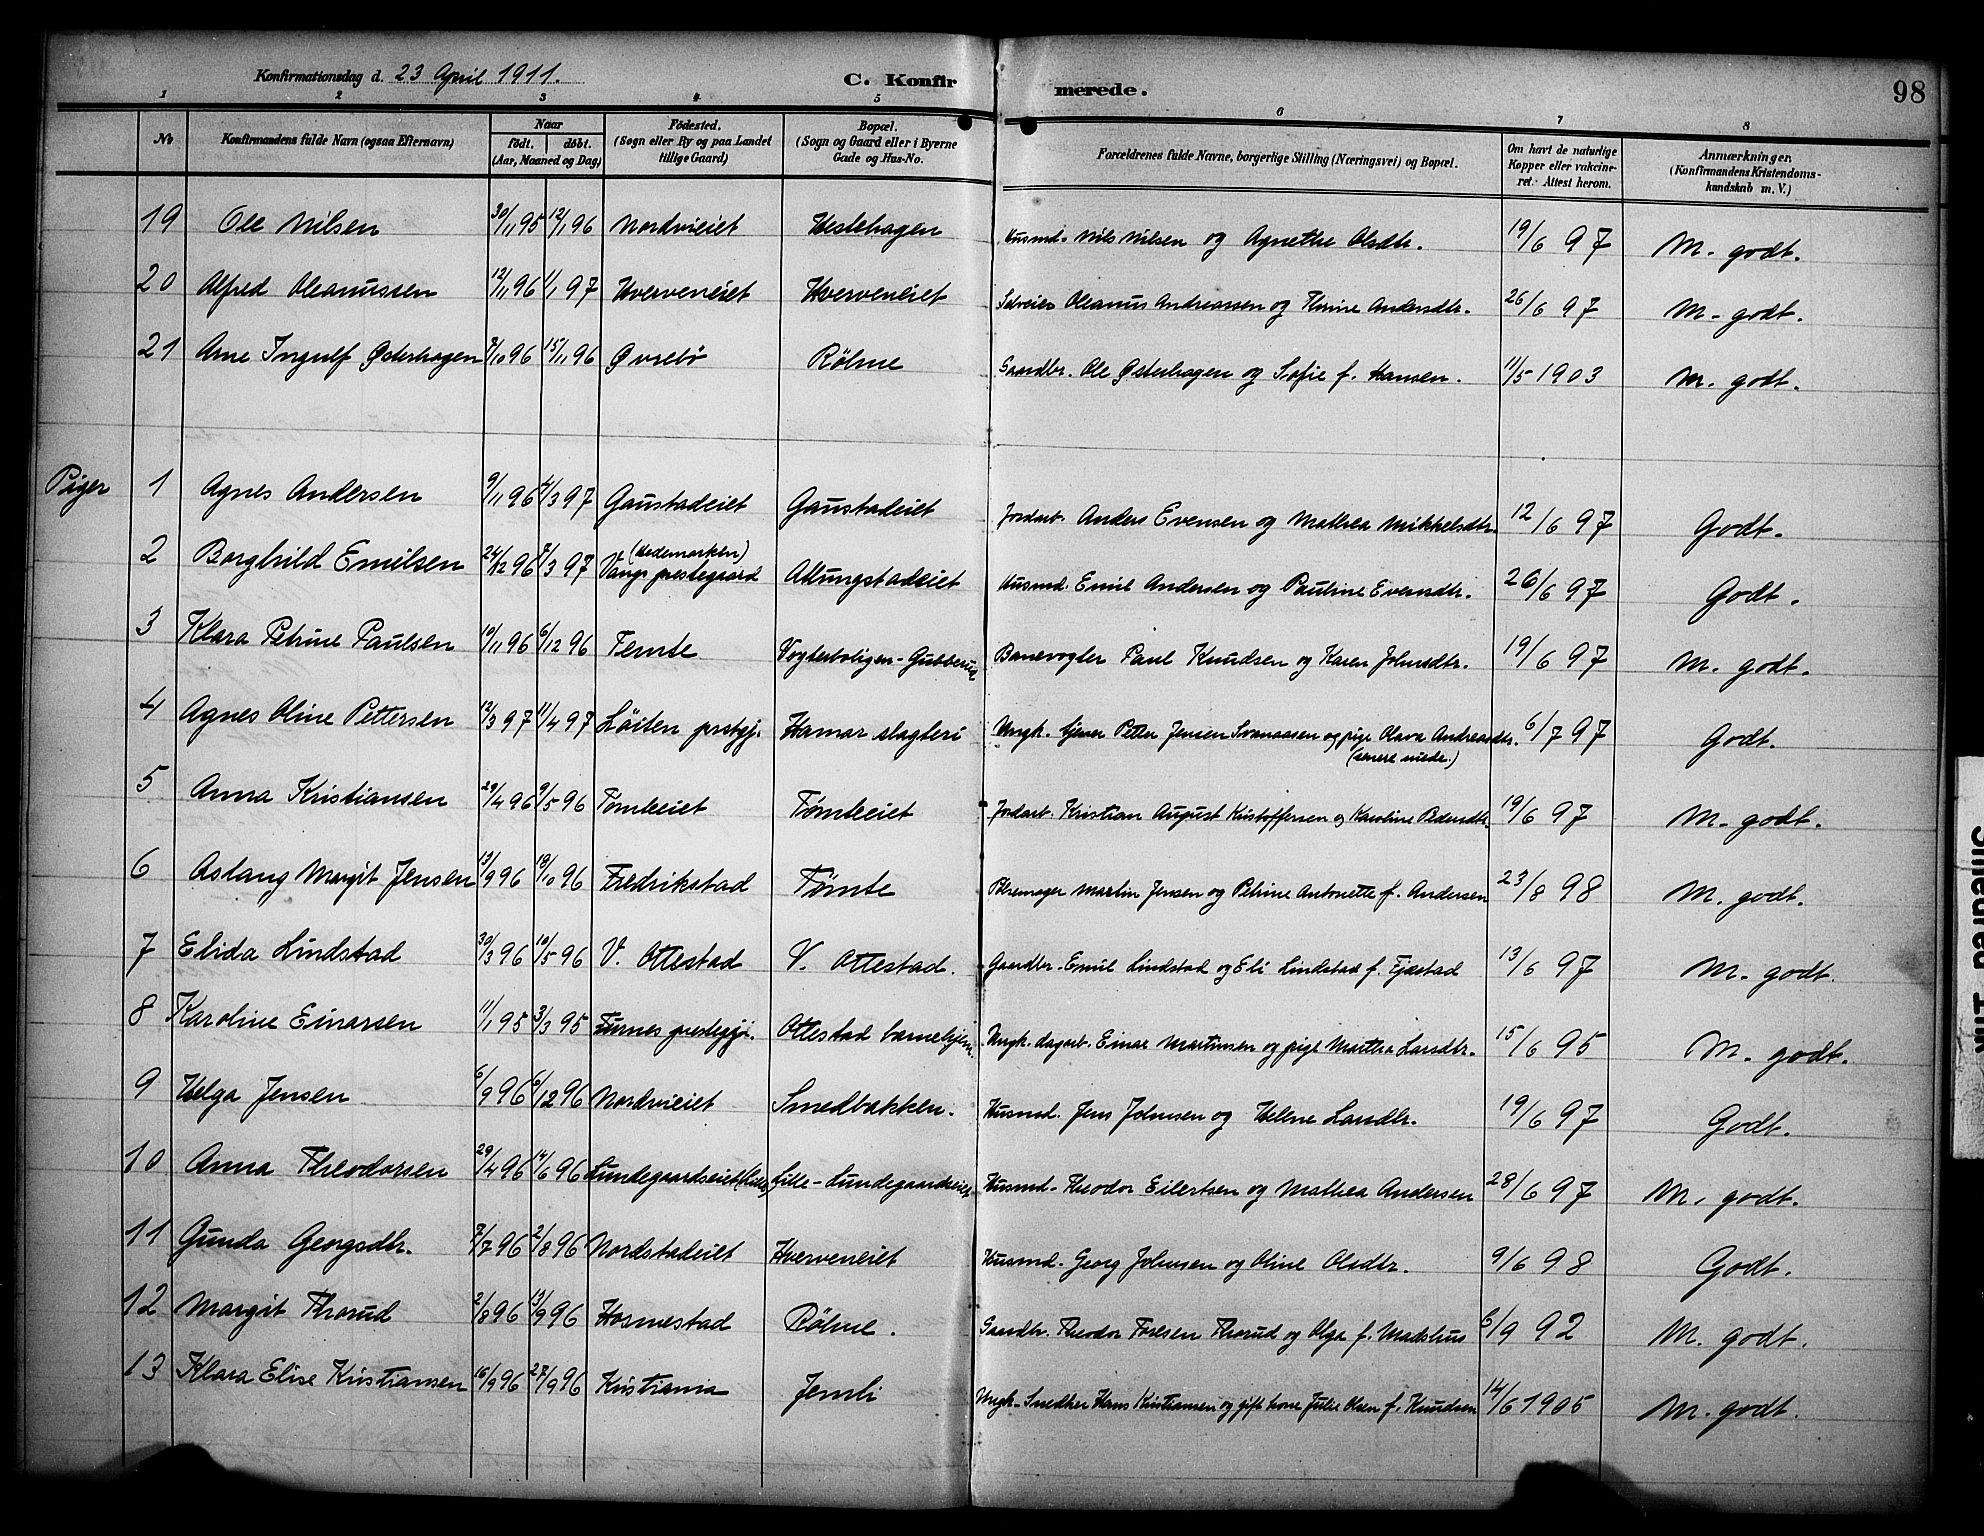 Konfirmationsdag d. 23 April 1911. C. Konfirmerede. 98
1 2 3 4 5 6 7 8
No Konfirmandens fulde Navn (ogsaa Efternavn) Naar født. døbt. (Aar, Maaned og Dag) Fødested. (Sogn eller By og paa Landet tillige Gaard) Bopæl. (Sogn og Gaard eller i Byerne Gade og Hus-No. Forældrenes fulde Navne, borgerlige Stilling (Næringsvei) og Bopæl. Om havt de naturlige Kopper eller vakcineret. Attest herom. Anmærkninger. (Konfirmandens Kristendomskundskab m. V.)
19 Ole Nilsen 30/11 95 12/1 96 Nordvieiet Hestehagen Husmd. Nils Nilsen og Agnethe Olsdtr. 19/6 97 M. godt.
20 Alfred Oleanussen 12/11 96 1/1 97 Hverveneiet Hverveneiet Selveier Oleanus Andreassen og Thrine Andersdtr. 26/6 97 M. godt.
21 Arne Ingulf Østerhagen 7/10 96 15/11 96 Øvrebø Röhne Gaardbr. Ole Østerhagen og Sofie f. Hansen. 11/5 1903 M. godt.
Piger 1 Agnes Andersen 9/11 96 4/3 97 Gaustadeiet Gaustadeiet Jordarb. Anders Evensen og Mathea Mikkelsdtr. 12/6 97 Godt.
2 Borghild Emilsen 24/12 96 7/3 97 Vangs prestegaard (Hedemarken) Atlungstadeiet Husmd. Emil Andersen og Pauline Evensdtr. 26/6 97 Godt.
3 Klara Petrine Paulsen 10/11 96 6/12 96 Temte Vogterboligen-Gubberud Banevogter Paul Knudsen og Karen Johnsdtr. 19/6 97 M. godt.
4 Agnes Oline Pettersen 12/3 97 11/4 97 Löiten prstgj. Hamar slagteri Ungk. tjener Petter Jensen Svenaasen og pige Olava Andreasdtr. (senere viede.) 6/7 97 Godt.
5 Anna Kristiansen 29/4 96 9/5 96 Tömteeiet Tømteeiet Jordarb. Kristian August Kristoffersen og Karoline Pedersdtr. 19/6 97 M. godt.
6 Aslaug Margit Jensen 13/9 96 18/10 96 Fredrikstad Tømte Pølsemager Martin Jensen og Petrine Antonette f. Andersen 23/8 98 M. godt.
7 Elida Lindstad 30/3 96 10/5 96 V. Ottestad V. Ottestad. Gaardbr. Emil Lindstad og Eli Lindstad f. Tjæstad 13/6 97 M. godt.
8 Karoline Einarsen 11/1 95 3/3 95 Furnes prestegj. Ottestad barnehjem Ungk. dagarb. Einar Martinsen og pige Marthea Larsdtr. 15/6 95 M. godt.
9 Helga Jensen 6/9 96 6/12 96 Nordvieiet Smedbakken. Husmd. Jens Johnsen og Helene Larsdtr. 19/6 97 Godt.
10 Anna Theodorsen 29/4 96 14/6 96 Lundegaardseiet (Lille) Lille-Lundegaardseiet Husmd. Theodor Eilertsen og Mathea Andersen 28/6 97 M. godt.
11 Gunda Georgsdtr. 7/7 96 2/8 96 Nordstadeiet Hverveneiet Husmd. Georg Johnsen og Oline Olsdtr. 9/6 98 Godt.
12 Margit Thorud 2/8 96 13/9 96 Hosmestad Röhne. Gaardbr. Theodor Toresen Thorud og Olga f. Madshus 6/9 92 M. godt.
13 Klara Elise Kristiansen 16/9 96 27/9 96 Kristiania Jemli Ungk. Snedker Hans Kristiansen og gift kone Julie Olsen f. Knudsen 14/6 1905 M. godt.